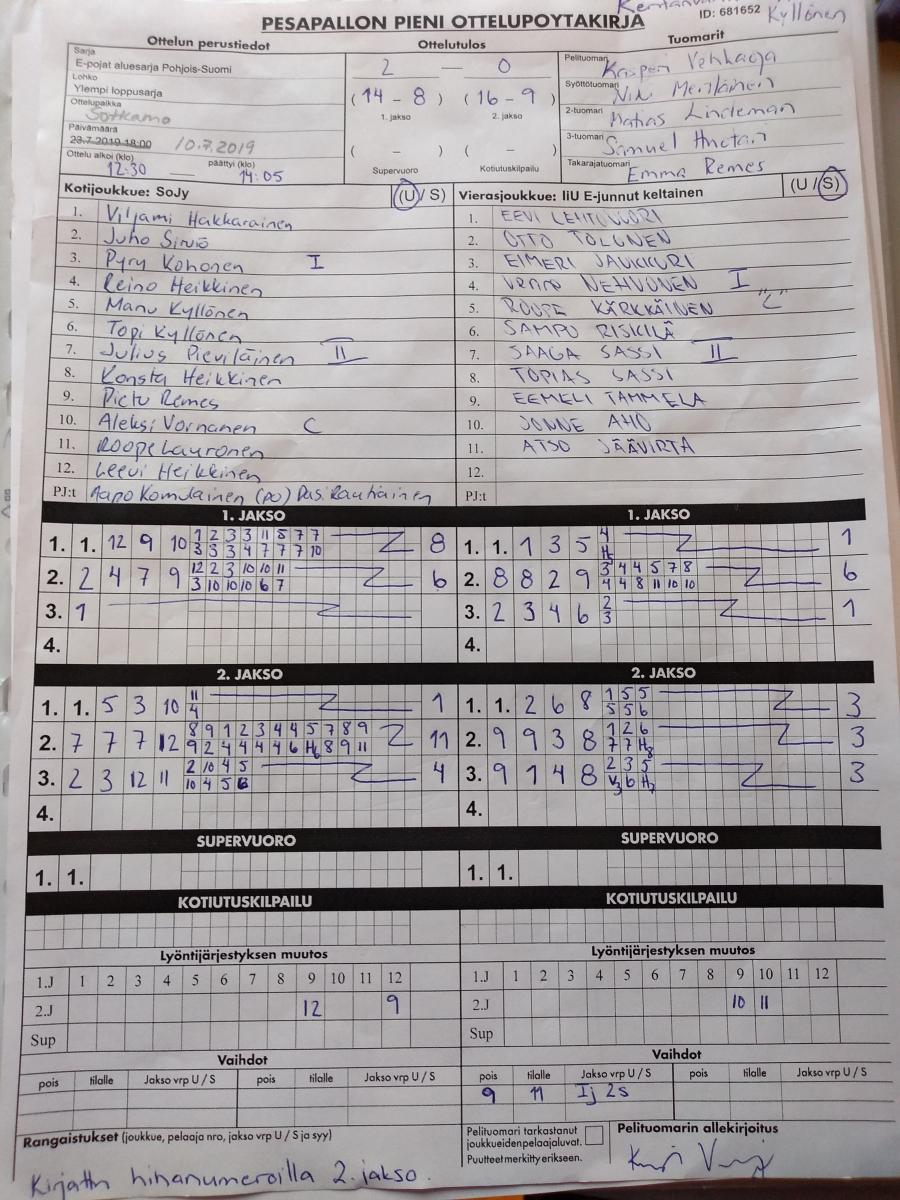 PESÄPALLON PIENI OTTELUPÖYTÄKIRJA
ID: 681652 Kyllönen
Ottelun perustiedot
Sarja
E-pojat aluesarja Pohjois-Suomi
Lohko
Ylempi loppusarja
Ottelupaikka
Sotkamo
Päivämäärä
23.7.2019 18:00 10.7.2019
Ottelu alkoi (klo) päättyi (klo)
12:30 — 14:05
Ottelutulos
2 — 0
(14 - 8) (16 - 9)
1. jakso 2. jakso
( - ) ( - )
Supervuoro Kotiutuskilpailu
Tuomarit
Pelituomari Kasperi
Syöttötuomari
2-tuomari Matias Lindeman
3-tuomari Samuel
Takarajatuomari Emma Remes
Kotijoukkue: SoJy (U / S)
1. Viljami Hakkarainen
2. Juho Sirviö
3. Pyry Kohonen I
4. Reino Heikkinen
5. Manu Kyllönen
6. Topi Kyllönen
7. Julius Pieviläinen II
8. Konsta Heikkinen
9. Pietu Remes
10. Aleksi Vornanen C
11. Roope Lauronen
12. Leevi Heikkinen
PJ:t Aapo Komulainen (po) Pasi Rautiainen
Vierasjoukkue: IiU E-junnut keltainen (U / S)
1. EEVI LEHTOVUORI
2. OTTO TOLONEN
3. EIMERI JAUKKURI
4. NEHVONEN I
5. ROOPE KÄRKKÄINEN "C"
6. SAMPO RISKILÄ
7. SAAGA SASSI II
8. TOPIAS SASSI
9. EEMELI TAMMELA
10. JONNE AHO
11. ATSO JÄÄVIRTA
12.
PJ:t
1. JAKSO
1. 1. 12 9 10 1 2 3 3 11 5 7 7 8
3 3 3 4 7 7 7 10
2. 2 4 7 9 12 2 3 10 10 11 6
3 10 10 10 6 7
3. 1
4.
1. JAKSO
1. 1. 1 3 5 4 1
H
2. 8 8 2 9 3 4 4 5 7 8 6
4 4 8 11 10 10
3. 2 3 4 6 2 1
3
4.
2. JAKSO
1. 1. 5 3 10 11 1
4
2. 7 7 7 12 8 9 1 2 3 4 4 5 7 8 9 11
9 2 4 4 4 4 6 H6 8 9 11
3. 2 3 12 11 2 10 4 5 4
10 4 5 6
4.
2. JAKSO
1. 1. 2 6 8 1 5 5 3
5 5 6
2. 9 9 3 8 1 2 6 3
7 7 H8
3. 9 1 4 8 2 3 5 3
V3 6 H7
4.
SUPERVUORO
1. 1.
SUPERVUORO
1. 1.
KOTIUTUSKILPAILU
KOTIUTUSKILPAILU
Lyöntijärjestyksen muutos
1.J 1 2 3 4 5 6 7 8 9 10 11 12
2.J 12 9
Sup
Lyöntijärjestyksen muutos
1.J 1 2 3 4 5 6 7 8 9 10 11 12
2.J 10 11
Sup
Vaihdot
pois tilalle Jakso vrp U / S pois tilalle Jakso vrp U / S
Vaihdot
pois tilalle Jakso vrp U / S pois tilalle Jakso vrp U / S
9 11 Ij 2s
Rangaistukset (joukkue, pelaaja nro, jakso vrp U / S ja syy)
Kirjattu hihanumeroilla 2. jakso.
Pelituomari tarkastanut
joukkueiden pelaajaluvat.
Puutteet merkitty erikseen.
Pelituomarin allekirjoitus